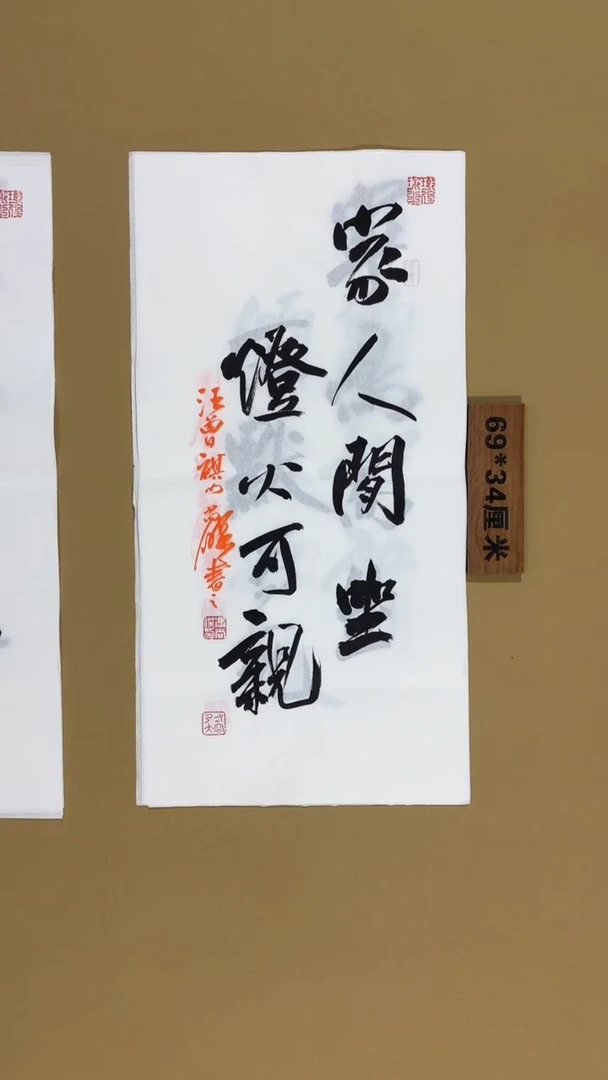 家人閒坐
燈火可親
汪曾祺句 書之
69*34厘米